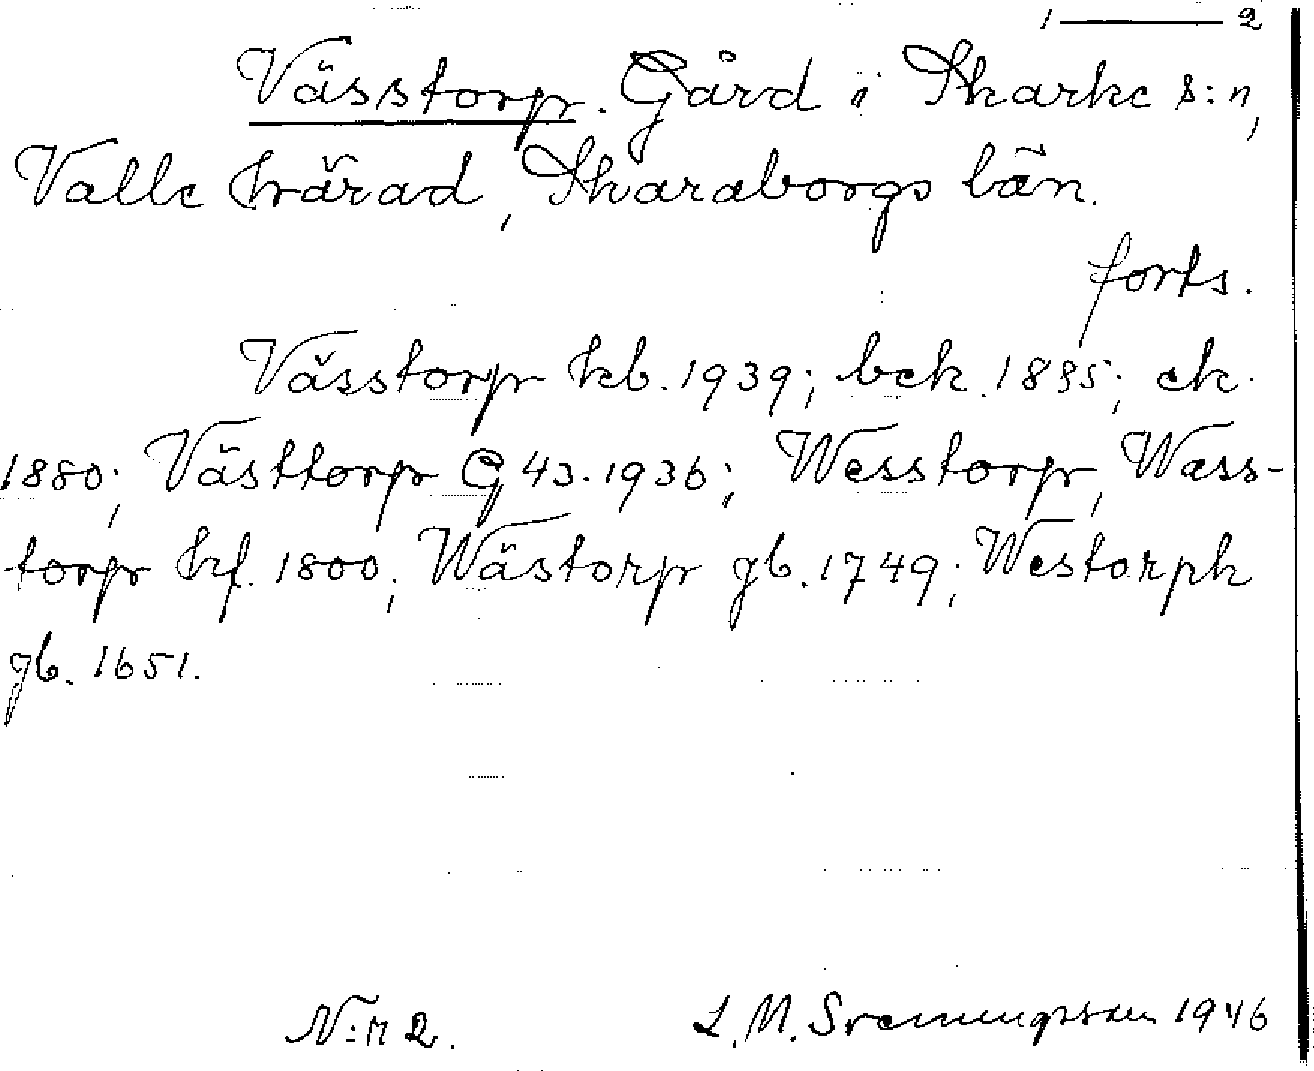 1 — 2
Vässtorp. Gård i Skarke s:n,
Valle härad, Skaraborgs län.
forts.
Vässtorp kb. 1939; bek. 1885; ek.
1880; Västtorp G 43. 1936; Wesstorp, Wäss-
torp hf. 1800; Wästorp gb. 1749; Westorph
gb. 1651.
N:r 2.
L. M. Svenungsson 1946